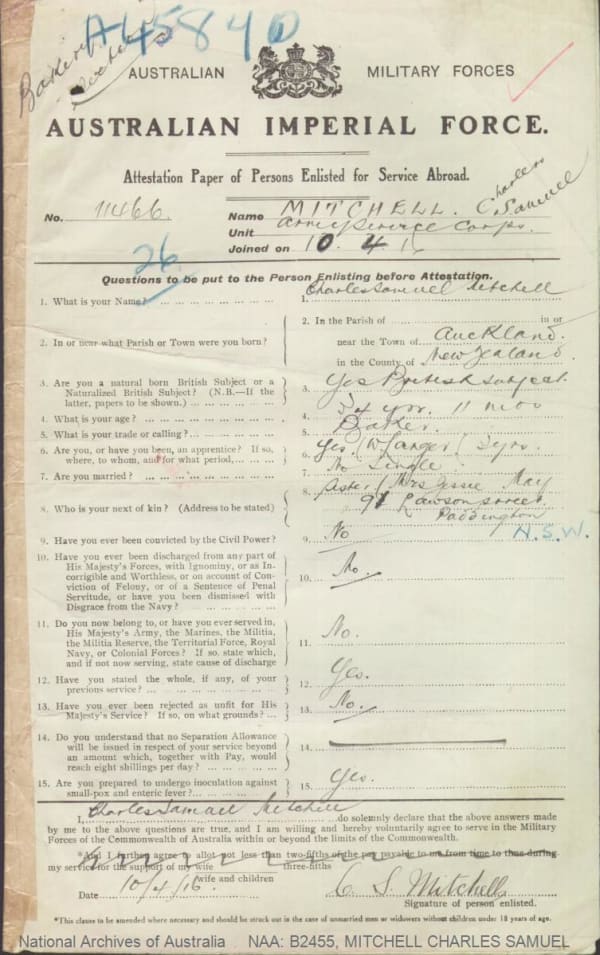 A45840
Baker
AUSTRALIAN MILITARY FORCES
AUSTRALIAN IMPERIAL FORCE.
Attestation Paper of Persons Enlisted for Service Abroad.
No. 11466. Name MITCHELL. Charles
C. Samuel
Unit Army Service Corps.
Joined on 10. 4. 16
26
Questions to be put to the Person Enlisting before Attestation.
1. What is your Name? 1. Charles Samuel Mitchell
2. In or near what Parish or Town were you born? 2. In the Parish of in or
near the Town of Auckland.
in the County of New Zealand.
3. Are you a natural born British Subject or a Naturalized British Subject? (N.B.—If the latter, papers to be shown.) 3. Yes British Subject.
4. What is your age? 4. 34 yrs. 11 mths
5. What is your trade or calling? 5. Baker.
6. Are you, or have you been, an apprentice? If so, where, to whom, and for what period, 6. Yes. 3 yrs.
7. Are you married? 7. No Single
8. Who is your next of kin? (Address to be stated) 8. Mrs Jessie May
91 Lawson Street
Paddington
N.S.W.
9. Have you ever been convicted by the Civil Power? 9. No
10. Have you ever been discharged from any part of
His Majesty's Forces, with Ignominy, or as In-
corrigible and Worthless, or on account of Con-
viction of Felony, or of a Sentence of Penal
Servitude, or have you been dismissed with
Disgrace from the Navy? 10. No.
11. Do you now belong to, or have you ever served in,
His Majesty's Army, the Marines, the Militia,
the Militia Reserve, the Territorial Force, Royal
Navy, or Colonial Forces? If so, state which,
and if not now serving, state cause of discharge 11. No.
12. Have you stated the whole, if any, of your
previous service? 12. Yes.
13. Have you ever been rejected as unfit for His
Majesty's Service? If so, on what grounds? 13. No.
14. Do you understand that no Separation Allowance
will be issued in respect of your service beyond
an amount which, together with Pay, would
reach eight shillings per day? 14.
15. Are you prepared to undergo inoculation against
small-pox and enteric fever? 15. Yes.
I, Charles Samuel Mitchell do solemnly declare that the above answers made
by me to the above questions are true, and I am willing and hereby voluntarily agree to serve in the Military
Forces of the Commonwealth of Australia within or beyond the limits of the Commonwealth.
*And I further agree to allot not less than two-fifths of the pay payable to me from time to time during
three-fifths
my service for the support of my wife
wife and children
Date 10/4/16 C. S. Mitchell
Signature of person enlisted.
*This clause to be amended where necessary and should be struck out in the case of unmarried men or widowers without children under 18 years of age.
National Archives of Australia NAA: B2455, MITCHELL CHARLES SAMUEL